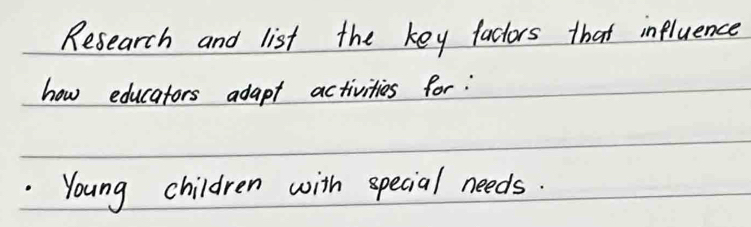 Research and list the key factors that influence
how educators adapt activities for:
• Young children with special needs.